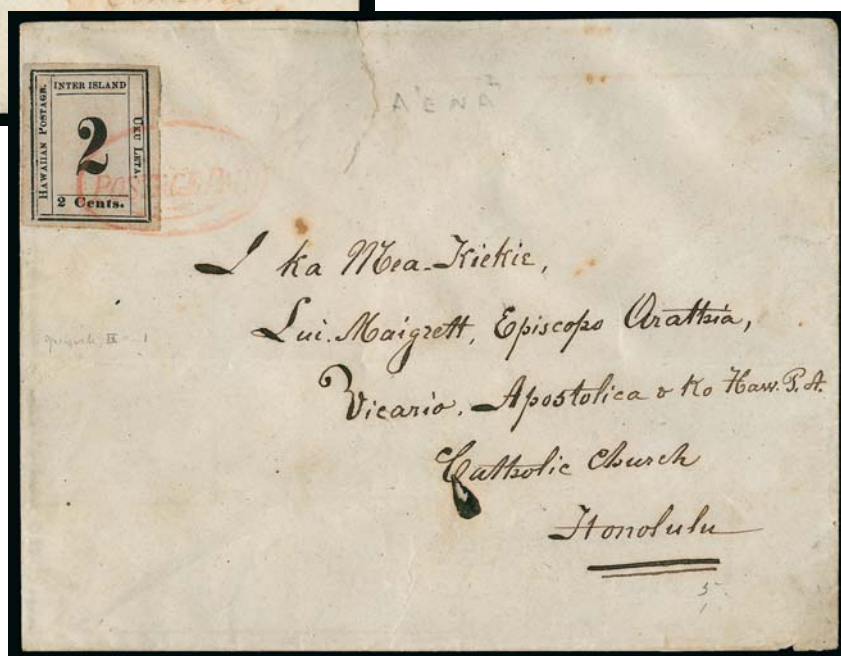 HAWAIIAN POSTAGE.
INTER ISLAND
UKU LETA.
2
2 Cents.
POSTAGE PAID
A'ENA
I ka Mea-Kiekie,
Lui. Maigrett, Episcopo Arathia,
Vicario. Apostolica o Ko Haw. P. A.
Catholic Church
Honolulu
5